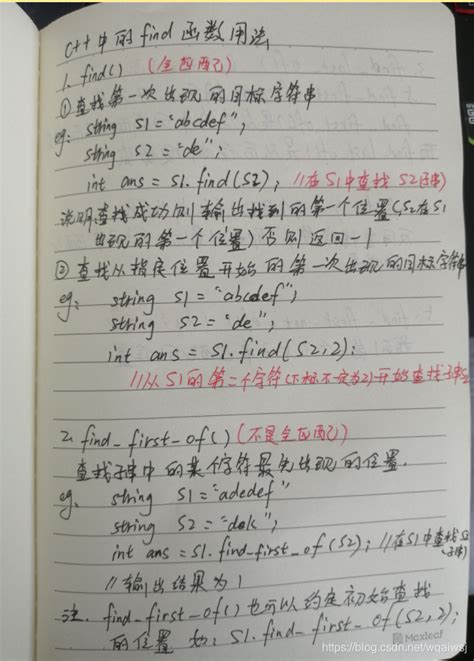 C++中的find函数用法
1. find() (全匹配)
①查找第一次出现的目标字符串
eg: string S1="abcdef";
string S2="de";
int ans=S1.find(S2); //在S1中查找S2子串
说明:查找成功则输出找到的第一个位置(S2在S1
出现的第一个位置)否则返回-1
②查找从指定位置开始的第一次出现的目标字符串
eg: string S1="abcdef";
string S2="de";
int ans=S1.find(S2,2);
//从S1的第二个字符(下标为2)开始查找子串
2. find_first_of() (不是全匹配)
查找子串中的某个字符最先出现的位置.
eg. string S1="adedef"
string S2="dek";
int ans=S1.find_first_of(S2); //在S1中查找S2
子串
//输出结果为1
注. find_first_of()也可以约定初始查找
的位置 如: S1.find_first_of(S2,2);
Maxleaf
https://blog.csdn.net/wqaiwsj